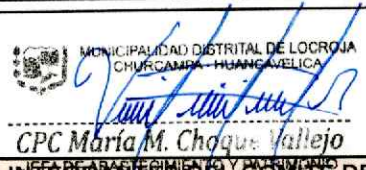 MUNICIPALIDAD DISTRITAL DE LOCROJA
CHURCAMPA - HUANCAVELICA
CPC María M. Choque Vallejo
JEFA DE ABASTECIMIENTO Y PATRIMONIO